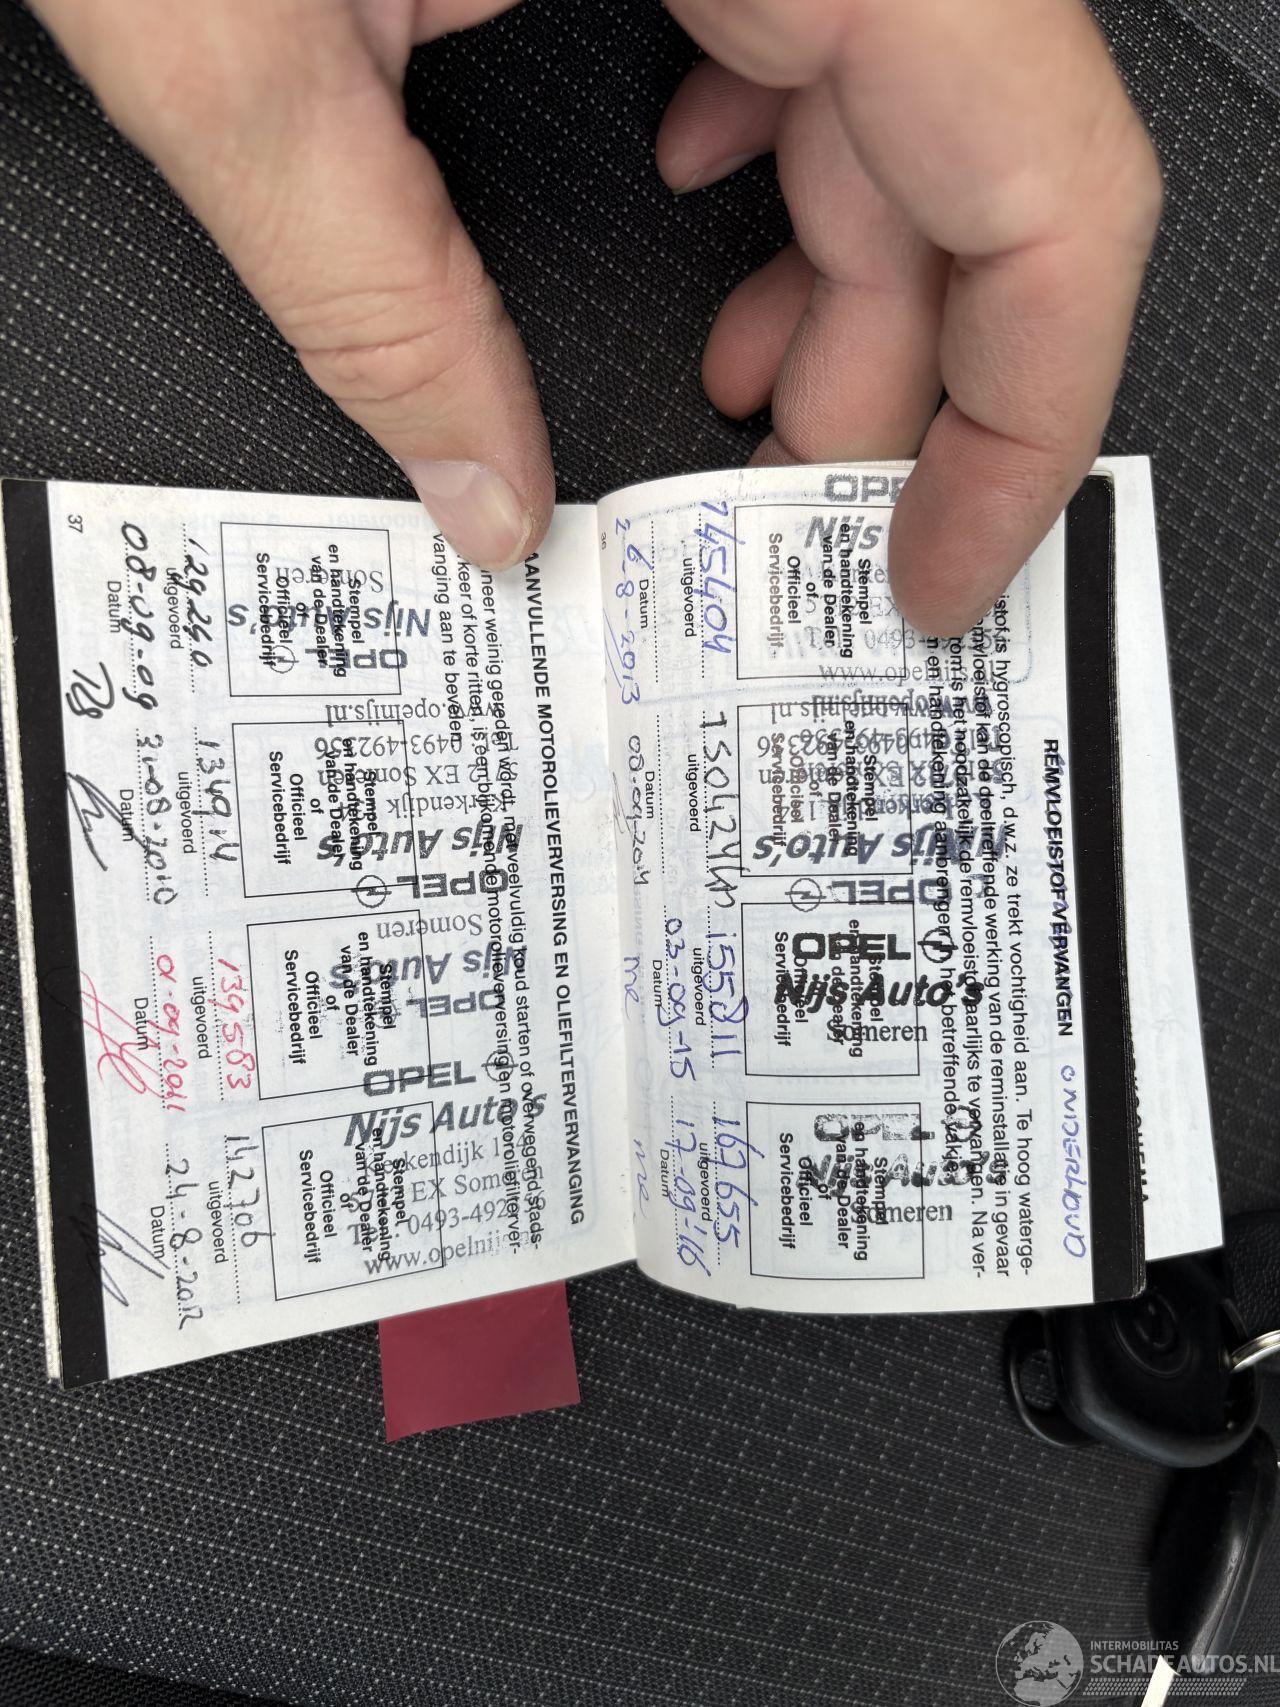 REMVLOEISTOFVERVANGEN ONDERHOUD
is hygroscopisch, d.w.z. ze trekt vochtigheid aan. Te hoog waterge-
kan de doeltreffende werking van de reminstallatie in gevaar
is het noodzakelijk de remvloeistof jaarlijks te vervangen. Na ver-
en handtekening aanbrengen in het betreffende vakje.
OPEL
Nijs
0493-
www.opelnijs.nl
Stempel
en handtekening
van de Dealer
of
Officieel
Servicebedrijf
145404
uitgevoerd
26-8-2013
Datum
OPEL
Nijs Auto's
Stempel
en handtekening
van de Dealer
of
Officieel
Servicebedrijf
150424km
uitgevoerd
Datum
08-09-2014
OPEL
Nijs Auto's
Someren
Stempel
en handtekening
van de Dealer
of
Officieel
Servicebedrijf
155811
uitgevoerd
03-09-15
Datum
OPEL
Nijs Auto's
Someren
Stempel
en handtekening
van de Dealer
of
Officieel
Servicebedrijf
162655
uitgevoerd
17-09-'16
Datum
36
AANVULLENDE MOTOROLIEVERVERSING EN OLIEFILTERVERVANGING
neer weinig gereden wordt, met veelvuldig koud starten of overwegend stads-
keer of korte ritten, is een bijkomende motorolieverversing en motoroliefilterver-
vanging aan te bevelen.
OPEL
Nijs Auto's
Someren
Stempel
en handtekening
van de Dealer
of
Officieel
Servicebedrijf
129250
uitgevoerd
08-09-09
Datum
OPEL
Nijs Auto's
Kerkendijk
EX Someren
0493-492356
www.opelnijs.nl
Stempel
en handtekening
van de Dealer
of
Officieel
Servicebedrijf
134914
uitgevoerd
31-08-2010
Datum
OPEL
Nijs Auto's
Someren
Stempel
en handtekening
van de Dealer
of
Officieel
Servicebedrijf
139583
uitgevoerd
01-09-2011
Datum
OPEL
Nijs Auto's
kendijk
EX Someren
0493-492
www.opelnijs
Stempel
en handtekening
van de Dealer
of
Officieel
Servicebedrijf
142706
uitgevoerd
24-8-2012
Datum
37
INTERMOBILITAS
SCHADEAUTOS.NL